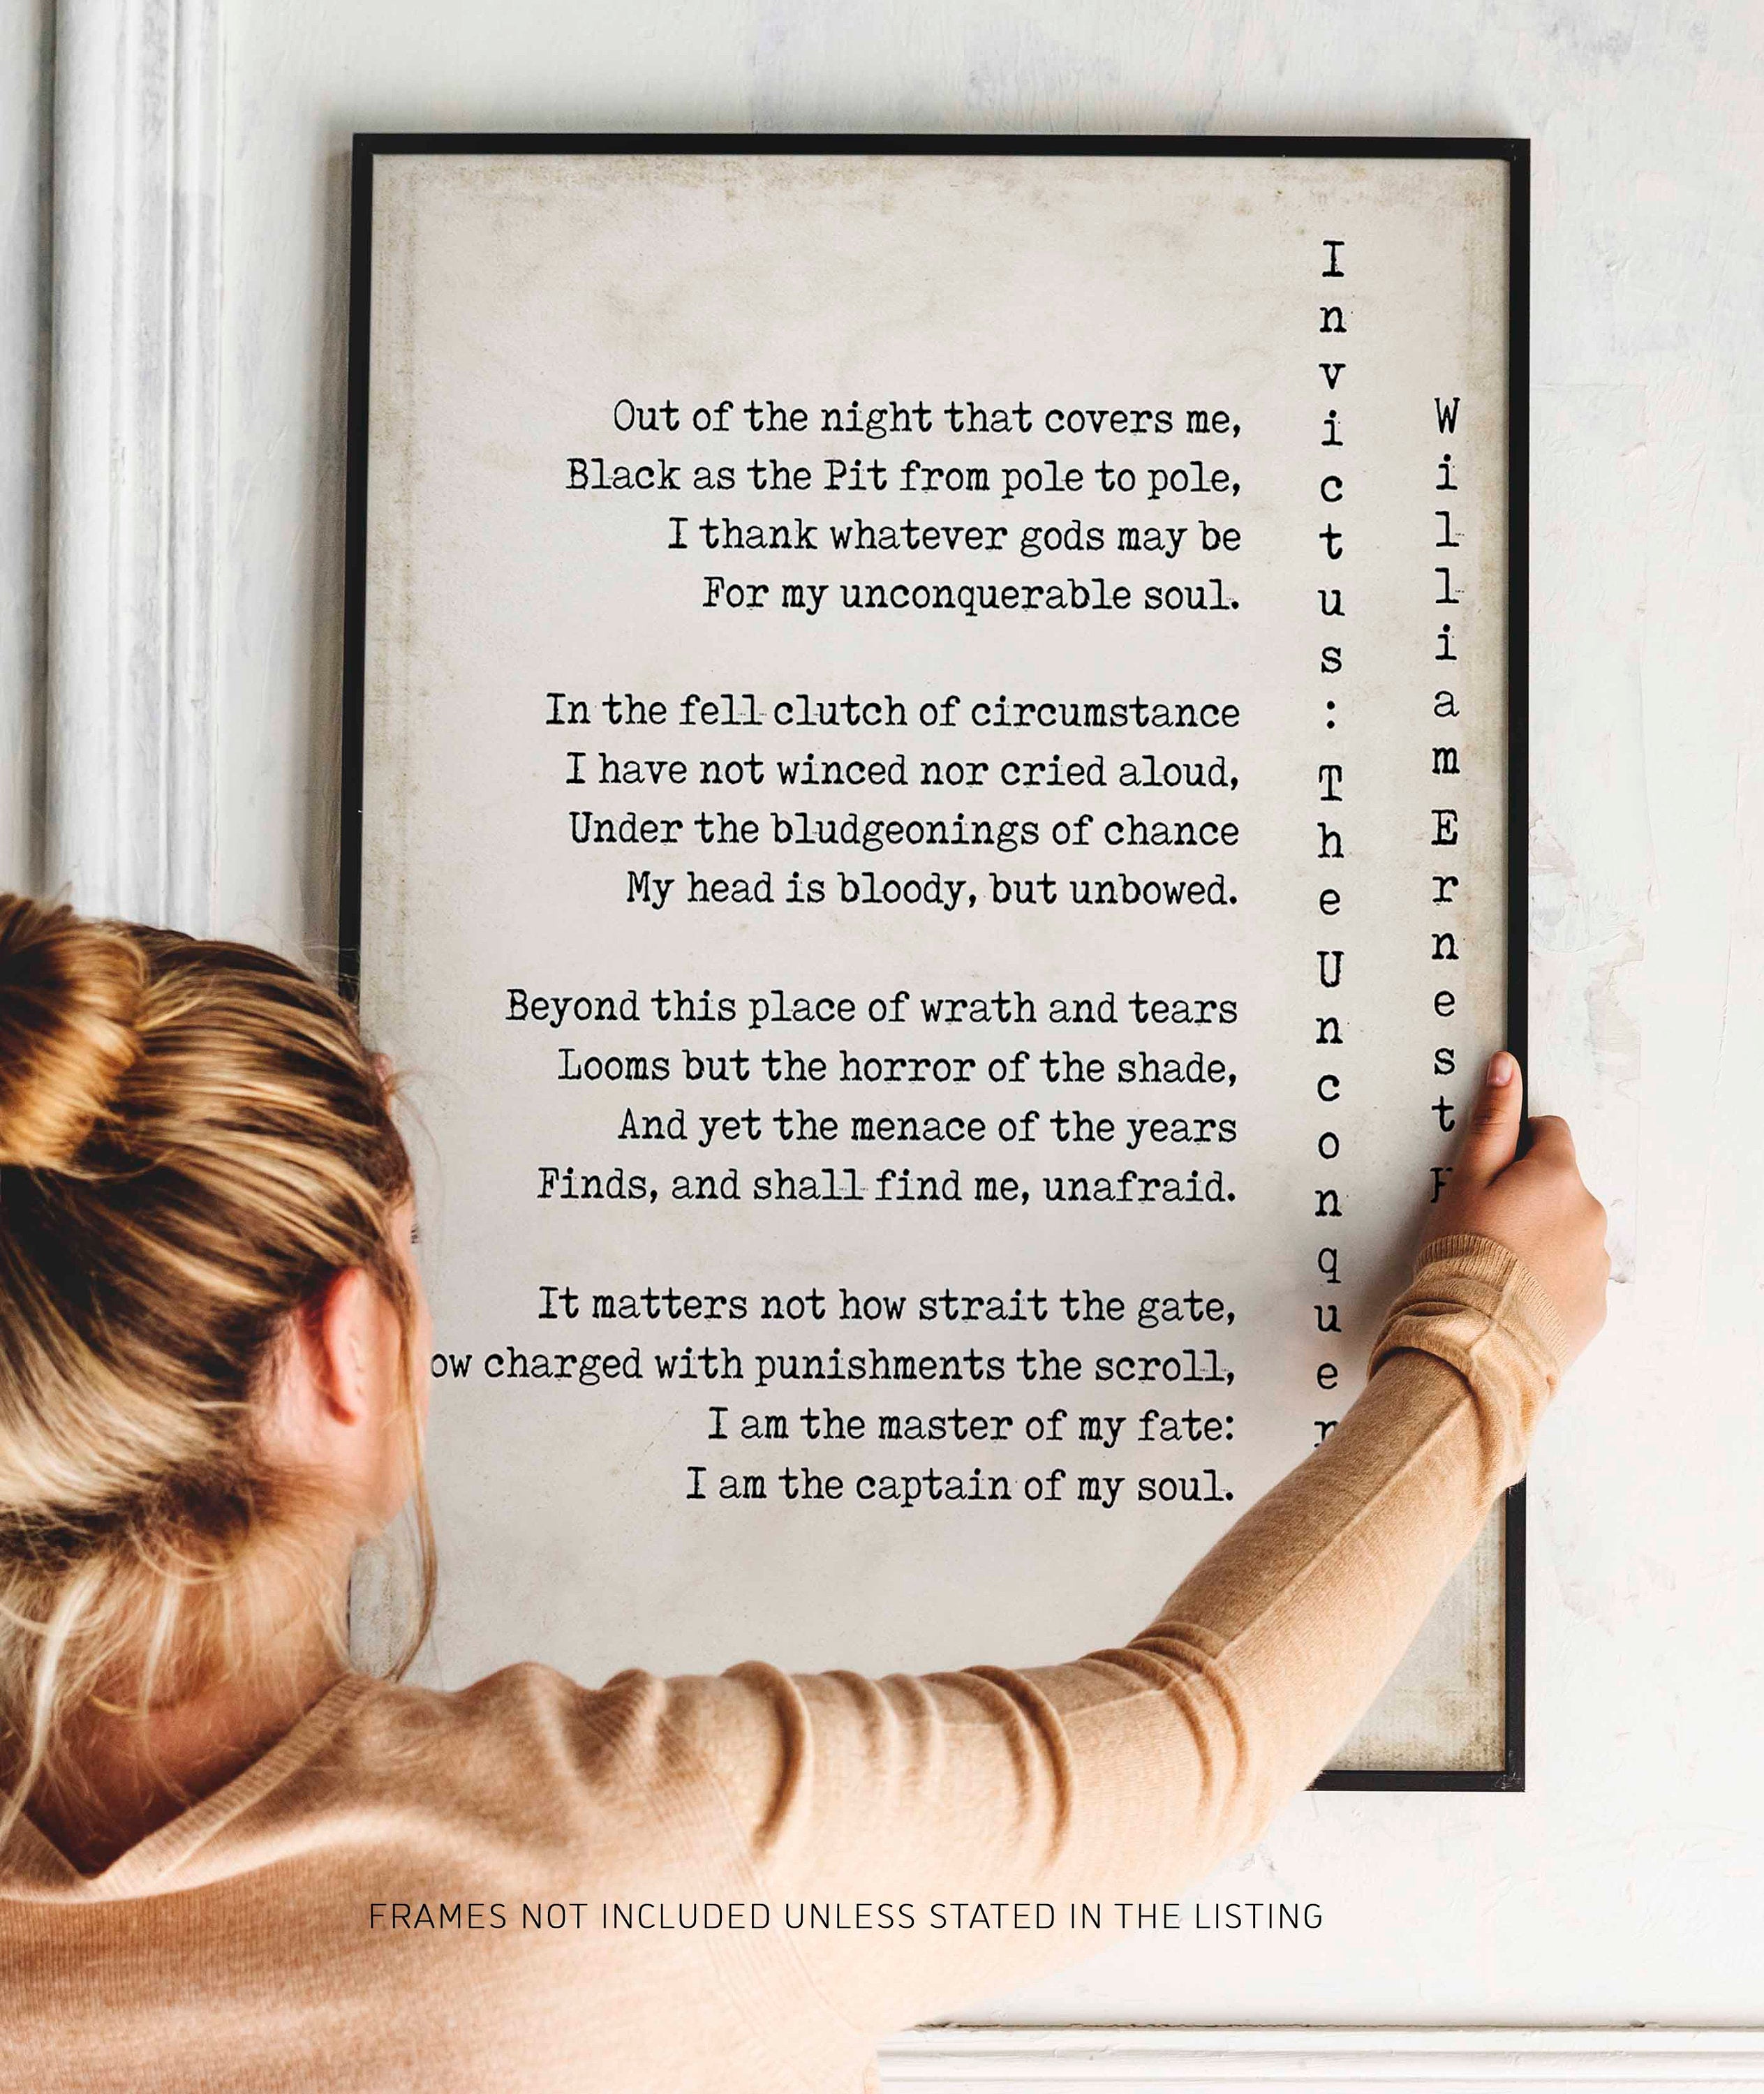 Out of the night that covers me,
Black as the Pit from pole to pole,
I thank whatever gods may be
For my unconquerable soul.
In the fell clutch of circumstance
I have not winced nor cried aloud,
Under the bludgeonings of chance
My head is bloody, but unbowed.
Beyond this place of wrath and tears
Looms but the horror of the shade,
And yet the menace of the years
Finds, and shall find me, unafraid.
It matters not how strait the gate,
ow charged with punishments the scroll,
I am the master of my fate:
I am the captain of my soul.
Invictus: The Unconquer
William Ernest
FRAMES NOT INCLUDED UNLESS STATED IN THE LISTING